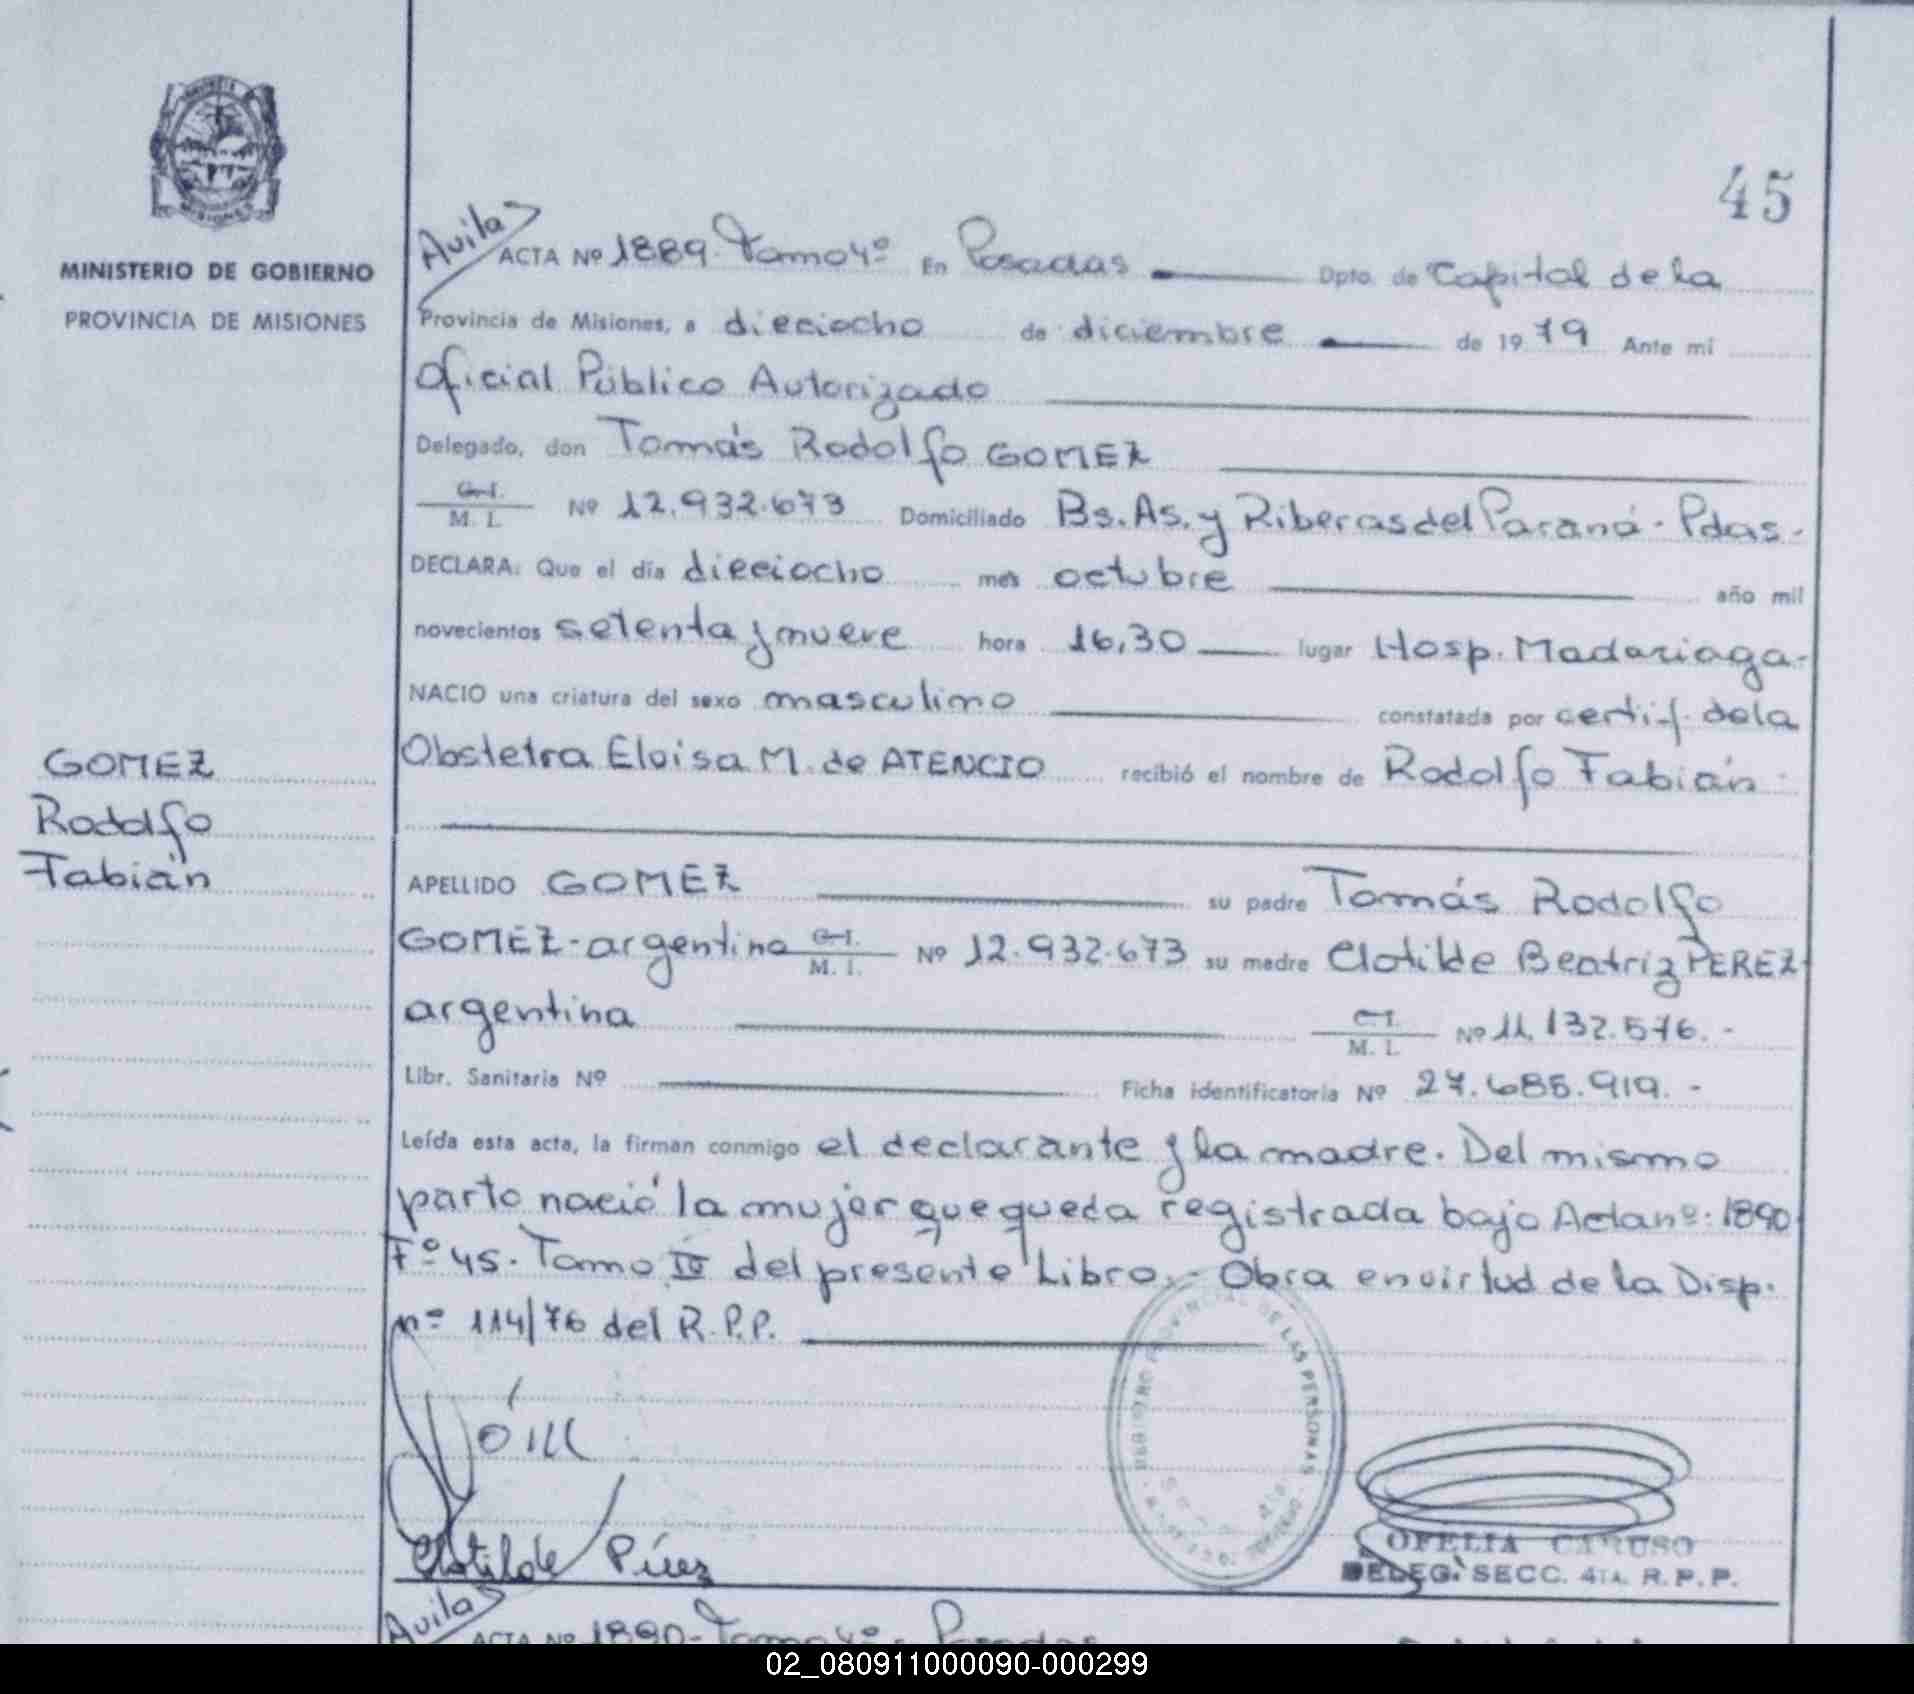 45
MINISTERIO DE GOBIERNO
PROVINCIA DE MISIONES
Avila
ACTA Nº 1889. Tomo 4º En Posadas Dpto. de Capital de la
Provincia de Misiones, a dieciocho de diciembre de 1979 Ante mi
Oficial Público Autorizado
Delegado, don Tomás Rodolfo GOMEZ
C.I. M. I. Nº 12.932.673 Domiciliado Bs. As. y Riberas del Paraná - Pdas.
DECLARA: Que el día dieciocho mes octubre año mil
novecientos setenta y nueve hora 16,30 lugar Hosp. Madariaga.
NACIO una criatura del sexo masculino constatada por certif. de la
Obstetra Eloisa M. de ATENCIO recibió el nombre de Rodolfo Fabián
GOMEZ
Rodolfo
Fabián
APELLIDO GOMEZ su padre Tomás Rodolfo
GOMEZ - argentino C.I. M. I. Nº 12.932.673 su madre Clotilde Beatriz PEREZ
argentina C.I. M. I. Nº 11.132.576.-
Libr. Sanitaria Nº Ficha identificatoria Nº 27.685.919.-
Leída esta acta, la firman conmigo el declarante y la madre. Del mismo
parto nació la mujer que queda registrada bajo Acta nº: 1890
Fº 45. Tomo IV del presente Libro.- Obra en virtud de la Disp.
nº 114/76 del R.P.P.
REGISTRO PROVINCIAL DE LAS PERSONAS
Clotilde Pérez
OFELIA CARUSO
DELEG. SECC. 4TA. R.P.P.
Avila
ACTA Nº 1890- Tomo 4º Posadas
02_080911000090-000299